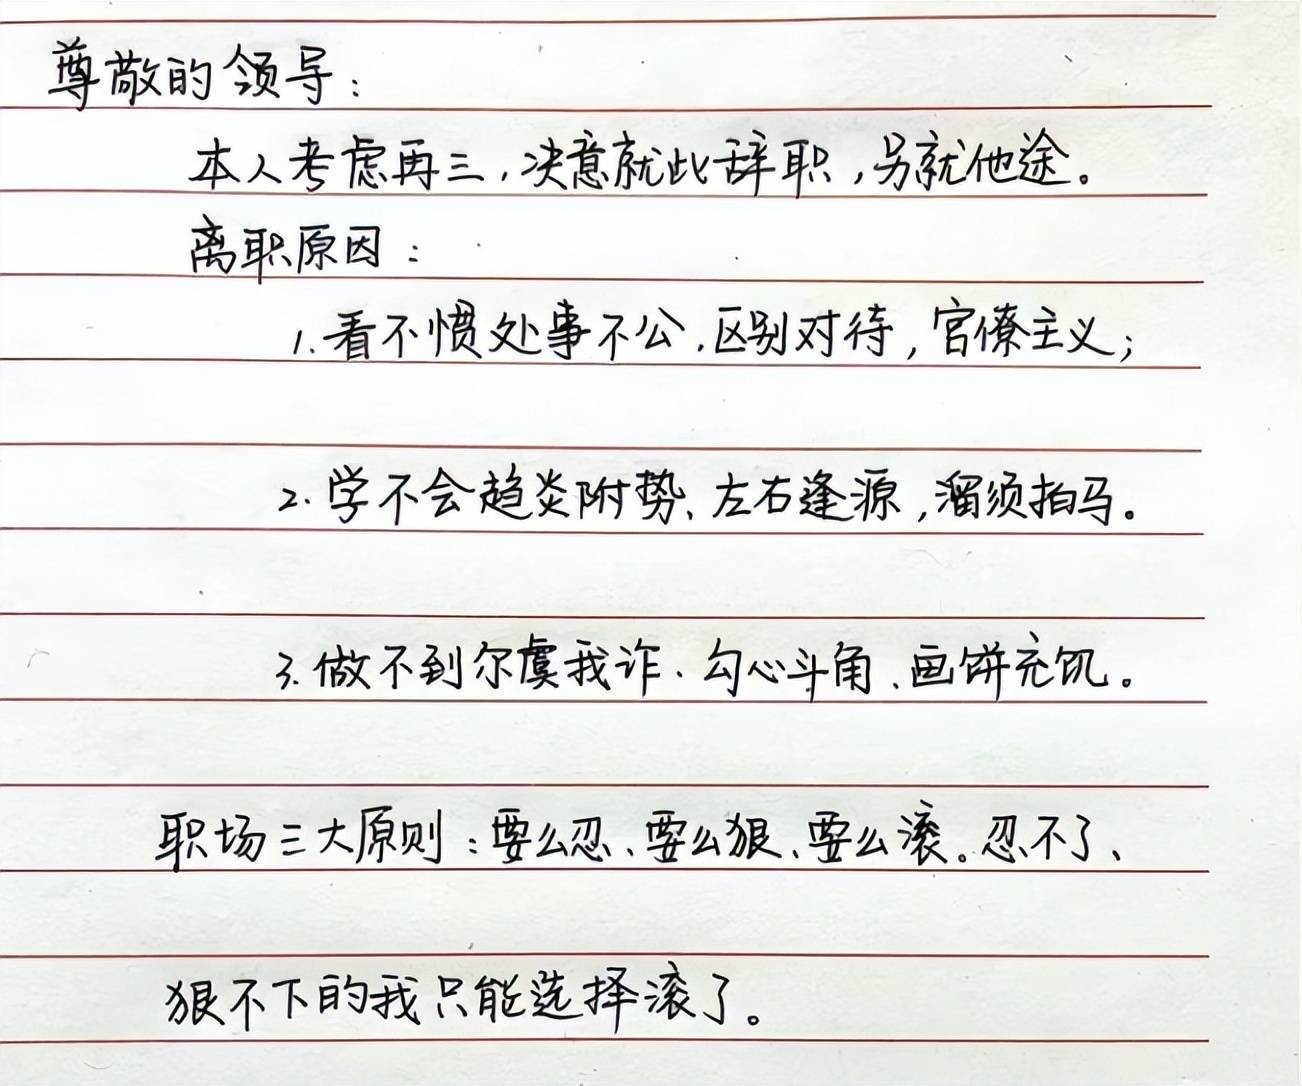 尊敬的领导：
本人考虑再三，决意就此辞职，另就他途。
离职原因：
1.看不惯处事不公、区别对待，官僚主义；
2.学不会趋炎附势、左右逢源，溜须拍马。
3.做不到尔虞我诈、勾心斗角、画饼充饥。
职场三大原则：要么忍、要么狠、要么滚。忍不了、
狠不下的我只能选择滚了。